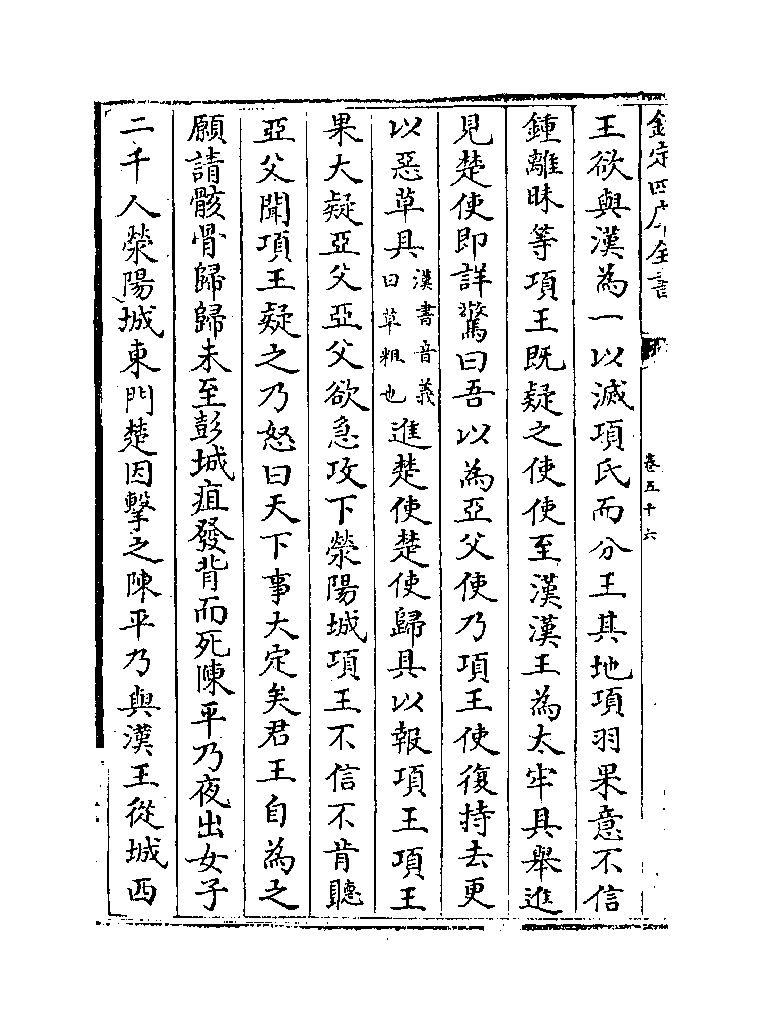 欽定四庫全書
卷五十六
王欲與漢為一以滅項氏而分王其地項羽果意不信
鍾離眛等項王既疑之使使至漢漢王為太牢具舉進
見楚使即詳驚曰吾以為亞父使乃項王使復持去更
以惡草具漢書音義曰草粗也進楚使楚使歸具以報項王項王
果大疑亞父亞父欲急攻下滎陽城項王不信不肯聽
亞父聞項王疑之乃怒曰天下事大定矣君王自為之
願請骸骨歸歸未至彭城疽發背而死陳平乃夜出女子
二千人滎陽城東門楚因擊之陳平乃與漢王從城西